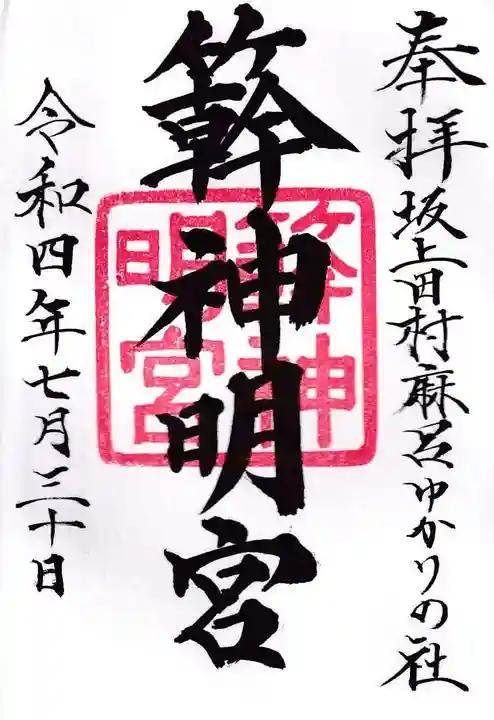 奉拝 坂上田村麻呂ゆかりの社
簳神明宮
簳神
明宮
令和四年七月三十日